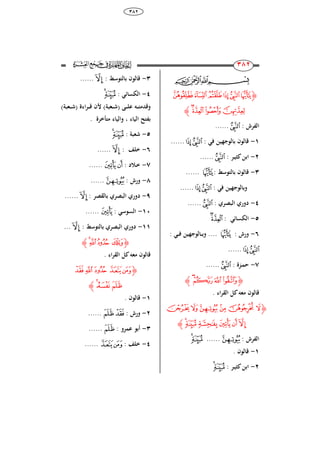 ٣٨٢
٣٨٢
﴿ يَٰٓأَيُّهَا ٱلنَّبِيُّ إِذَا طَلَّقۡتُمُ ٱلنِّسَآءَ فَطَلِّقُوهُنَّ
لِعِدَّتِهِنَّ وَأَحۡصُواْ ٱلۡعِدَّةَ ﴾
الفرش : ٱلنَّبِيُّ ......
١- قالون بالوجهين في : ٱلنَّبِيُّ إِذَا ......
٢- ابن كثير : ٱلنَّبِيُّ ......
٣- قالون بالتوسط : يَٰٓأَيُّهَا ......
وبالوجهين في : ٱلنَّبِيُّ إِذَا ......
٤- دوري البصري : ٱلنَّبِيُّ ......
٥- الكسائي : ٱلۡعِدَّةَ
٦- ورش : يَٰٓأَيُّهَا .... وبالوجهين في :
ٱلنَّبِيُّ إِذَا ......
٧- حمزة : ٱلنَّبِيُّ ......
﴿ وَٱتَّقُواْ ٱللَّهَ رَبَّكُمۡ ﴾
قالون معه كل القراء .
﴿ لَا تُخۡرِجُوهُنَّ مِنۢ بُيُوتِهِنَّ وَلَا يَخۡرُجۡنَ
إِلَّآ أَن يَأۡتِينَ بِفَٰحِشَةٖ مُّبَيِّنَةٖ ﴾
الفرش : بُيُوتِهِنَّ ...... مُّبَيِّنَةٖ
١- قالون .
٢- ابن كثير : مُّبَيِّنَةٖ
٣- قالون بالتوسط : إِلَّآ ......
٤- الكسائي : مُّبَيِّنَةٖ
وقدمنـه على (شعبة) لأن قـراءة (شعبة)
بفتح الياء ، والياء متأخرة .
٥- شعبة : مُّبَيِّنَةٖ
٦- خلف : إِلَّآ ......
٧- خلاد : أَن يَأۡتِينَ ......
٨- ورش : بُيُوتِهِنَّ ......
٩- دوري البصري بالقصر : إِلَّآ ......
١٠- السوسي : يَأۡتِينَ ......
١١- دوري البصري بالتوسط : إِلَّآ ...
﴿ وَتِلۡكَ حُدُودُ ٱللَّهِ ﴾
قالون معه كل القراء .
﴿ وَمَن يَتَعَدَّ حُدُودَ ٱللَّهِ فَقَدۡ
ظَلَمَ نَفۡسَهُ ﴾
١- قالون .
٢- ورش : فَقَدۡ ظَلَمَ ......
٣- أبو عمرو : ظَلَمَ ......
٤- خلف : وَمَن يَتَعَدَّ ......